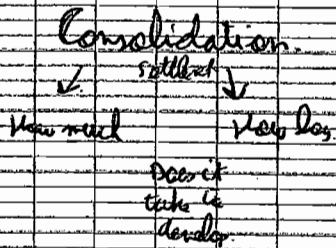 Consolidation.
settlement
How much How long
Does it
take to
develop.